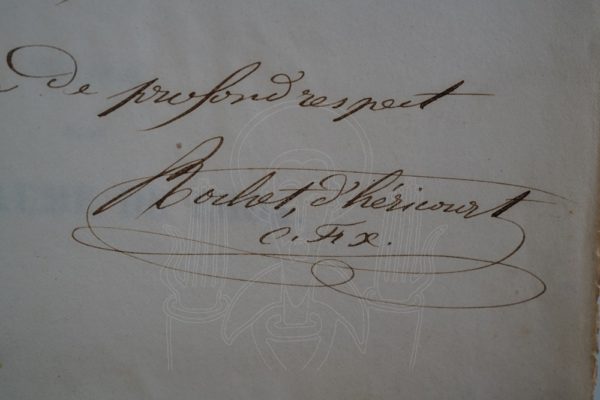 De profond respect
Rochet, d'héricourt
C. Fx.